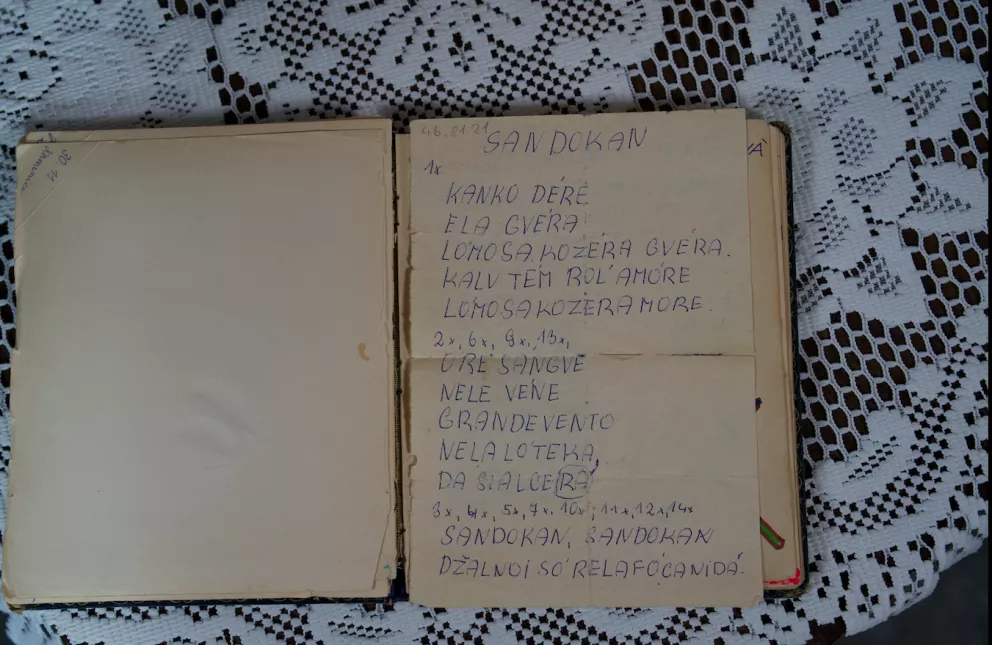 30 11
46.81 21
SANDOKAN
1x
KANKO DÉRE
ELA GVÉRA
LÓMOSA KOŻÉRA GVÉRA.
KALV TEM ROL'AMÓRE
LÓMOSAKOŻÉRAMORE.
2x, 6x, 9x, 13x,
ÓRE SANGVE
NELE VÉNE
GRANDEVENTO
NELALOTEKA,
DA SIALCERÁ
3x, 4x, 5x, 7x, 10x, 11x, 12x, 14x
SANDOKAN, SANDOKAN
DŽALNOI SÓ RELAFÓCANIDÁ.
VÁ